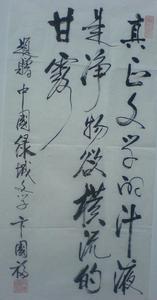 真正文学的汁液
是净物欲横流的
甘露
题赠中國绿城文学 卞國福